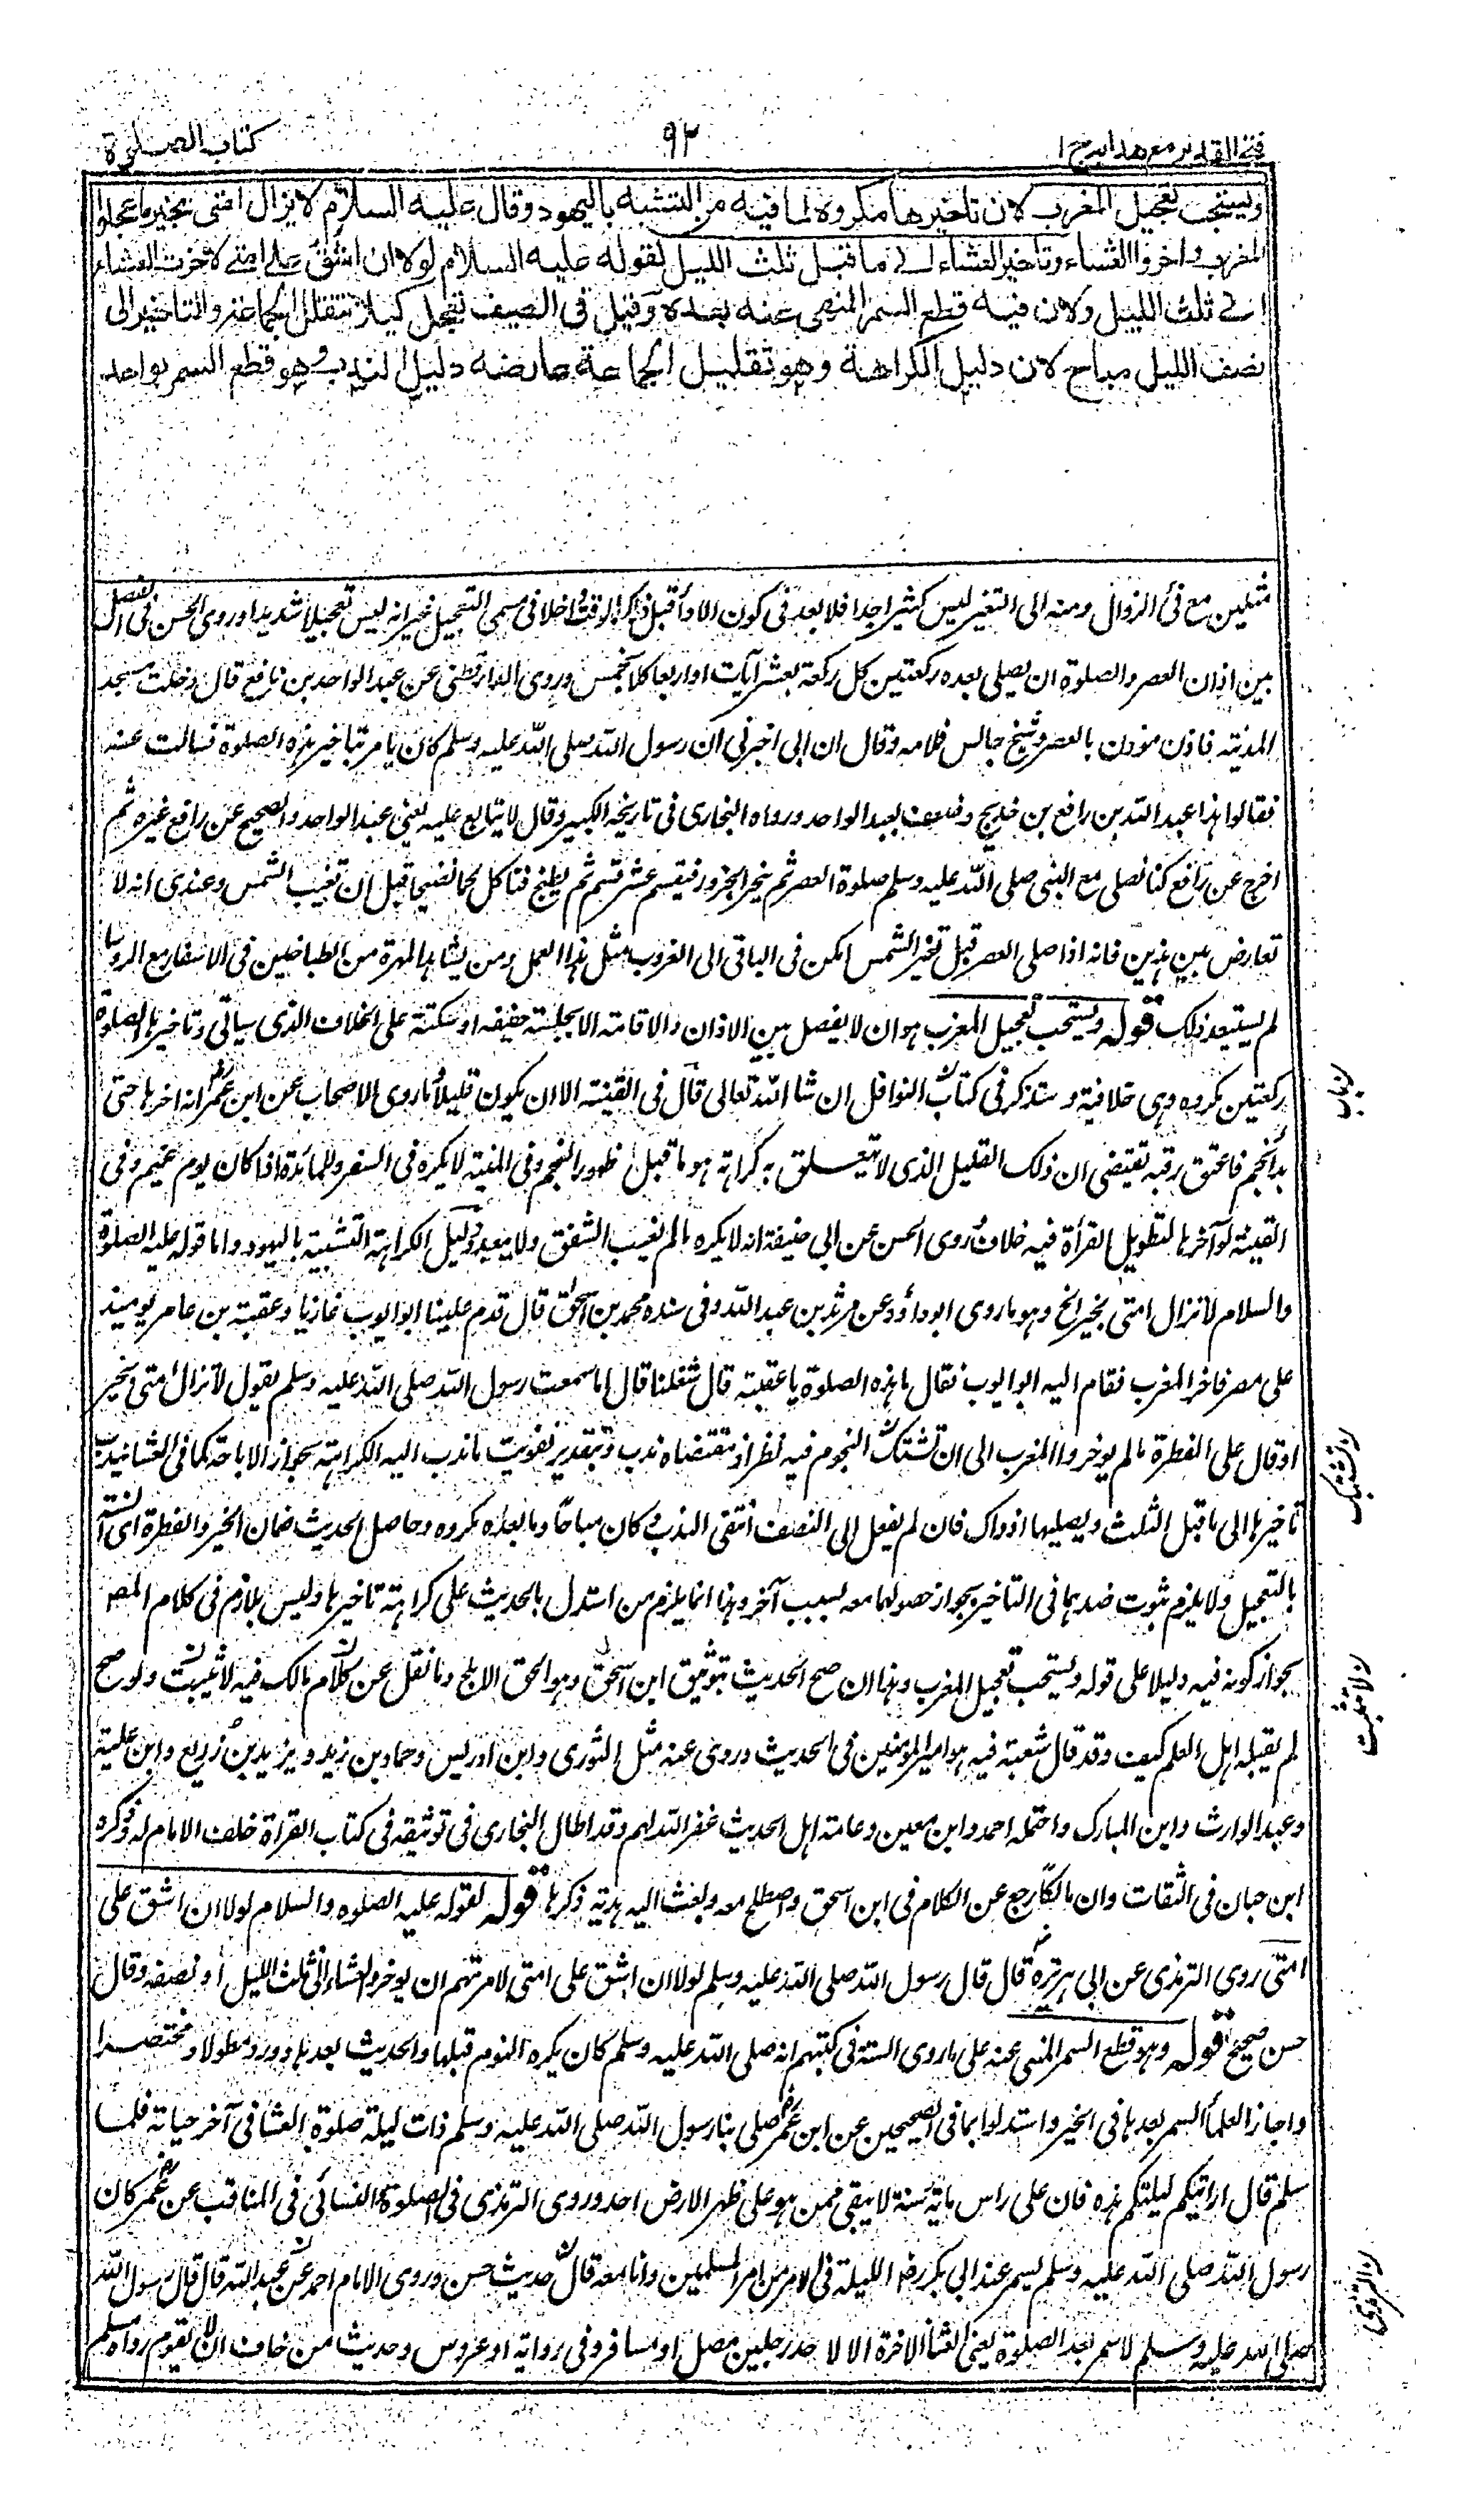 فتح القدير مع هدايه ج ١
٩٢
كتاب الصلوة
ويستحب تعجيل المغرب لان تاخيرها مكروه لما فيه من التشبه باليهود وقال عليه السلام لا يزال امتى بخير ما عجلوا
المغرب واخروا العشاء وتاخير العشاء الى ما قبل ثلث الليل لقوله عليه السلام لولا ان اشق على امتى لاخرت العشاء
الى ثلث الليل ولان فيه قطع السمر المنهى عنه بعده وقيل فى الصيف تعجل كيلا تتقلل الجماعة والتاخير الى
نصف الليل مباح لان دليل الكراهة وهو تقليل الجماعة عارضه دليل الندب وهو قطع السمر بواحد
مثلين مع فئ الزوال ومنه الى التغير ليس كثيرا جدا فلا يبعد فى كون الاداء قبل ذلك الوقت داخلا فى مسمى التعجيل غير انه ليس تعجيلا شديدا وروى الحسن فى الفصل
بين اذان العصر والصلوة ان يصلى بعده ركعتين كل ركعة بعشر آيات او اربعا كلا بخمس وروى الدارقطنى عن عبد الواحد بن نافع قال دخلت مسجد
المدينة فاذن موذن بالعصر وشيخ جالس فلامه وقال ان ابى اخبرنى ان رسول الله صلى الله عليه وسلم كان يامر بتاخير هذه الصلوة فسالت عنه
فقالوا هذا عبد الله بن رافع بن خديج وضعف بعبد الواحد ورواه البخارى فى تاريخه الكبير وقال لا يتابع عليه يعنى عبد الواحد والصحيح عن رافع غيره ثم
اخرج عن رافع كنا نصلى مع النبى صلى الله عليه وسلم صلوة العصر ثم ينحر الجزور فيقسم عشر قسم ثم يطبخ فناكل لحما نضيجا قبل ان تغيب الشمس وعندى انه لا
تعارض بين هذين فانه اذا صلى العصر قبل تغير الشمس امكن فى الباقى الى الغروب مثل هذا العمل ومن يشاهد المهرة من الطباخين فى الاسفار مع الروسا
لم يستبعد ذلك قوله ويستحب تعجيل المغرب هو ان لا يفصل بين الاذان والاقامة الا بجلسة خفيفه او سكتة على الخلاف الذى سياتى وتاخيرها لصلوة
ركعتين مكروه وهى خلافية وستذكر فى كتاب النوافل ان شا الله تعالى قال فى القنية الا ان يكون قليلا وما روى الاصحاب عن ابن عمر انه اخرها حتى
بدا نجم فاعتق رقبه يقتضى ان ذلك القليل الذى لا يتعلق به كراهة هو ما قبل ظهور النجم وفى المنية لا يكره فى السفر وللمائدة اذا كان يوم غيم وفى
القنية لو آخرها لتطويل القرأة فيه خلاف وروى الحسن عن ابى حنيفة انه لا يكره ما لم يغيب الشفق ولا يبعد ودليل الكراهة التشبيه باليهود واما قوله عليه الصلوة
والسلام لا تزال امتى بخير الخ وهو ما روى ابو داؤد عن مرثد بن عبد الله وفى سنده محمد بن اسحق قال قدم علينا ابو ايوب غازيا وعقبة بن عامر يوميذ
على مصر فاخر المغرب فقام اليه ابو ايوب فقال ما هذه الصلوة يا عقبة قال شغلنا قال اما سمعت رسول الله صلى الله عليه وسلم يقول لا تزال امتى بخير
او قال على الفطرة ما لم يوخروا المغرب الى ان تشتبك النجوم فيه نظر اذ مقتضاه ندب وبتقدير تفويت ما ندب اليه الكراهة بجواز الاباحة كما فى العشا يندب
تاخيرها الى ما قبل الثلث ويصليها اذ ذاك فان لم يفعل الى النصف انتفى الندب وكان مباحا وما بعده مكروه وحاصل الحديث ضمان الخير والفطرة اى السنة
بالتعجيل ولا يلزم ثبوت ضدهما فى التاخير بجواز حصولهما معه لسبب آخر وهذا انما يلزم من استدل بالحديث على كراهة تاخيرها وليس بلازم فى كلام المص
بجواز كونه فيه دليلا على قوله ويستحب تعجيل المغرب وهذا ان صح الحديث بتوثيق ابن اسحق وهو الحق الابلج وما نقل عن كلام مالك فيه لا يثبت ولو صح
لم يقبله اهل العلم كيف وقد قال شعبة فيه هو امير المؤمنين فى الحديث وروى عنه مثل الثورى وابن ادريس وحماد بن زيد ويزيد بن زريع وابن علية
وعبد الوارث وابن المبارك واحتمله احمد وابن معين وعامة اهل الحديث غفر الله لهم وقد اطال البخارى فى توثيقه فى كتاب القرأة خلف الامام له وذكره
ابن حبان فى الثقات وان مالكا رجع عن الكلام فى ابن اسحق واصطلح معه وبعث اليه هدية ذكرها قوله لقوله عليه الصلوه والسلام لولا ان اشق على
امتى روى الترمذى عن ابى هريرة قال قال رسول الله صلى الله عليه وسلم لولا ان اشق على امتى لامرتهم ان يوخروا العشاء الى ثلث الليل او نصفه وقال
حسن صحيح قوله وهو قطع السمر المنهى عنه على ما روى الستة فى كتبهم انه صلى الله عليه وسلم كان يكره النوم قبلها والحديث بعدها وورد مطولا ومختصرا
واجاز العلمأ السمر بعدها فى الخير واستدلوا بما فى الصحيحين عن ابن عمر صلى بنا رسول الله صلى الله عليه وسلم ذات ليلة صلوة العشا فى آخر حياته فلما
سلم قال ارايتكم ليلتكم هذه فان على راس مائة سنة لا يبقى ممن هو على ظهر الارض احد وروى الترمذى فى الصلوة والنسائى فى المناقب عن عمر كان
رسول الله صلى الله عليه وسلم يسمر عند ابى بكر رضـ الليلة فى الامر من امر المسلمين وانا معه قال حديث حسن وروى الامام احمد عن عبد الله قال قال رسول الله
صلى الله عليه وسلم لا سمر بعد الصلوة يعنى العشأ الاخرة الا لاحد رجلين مصل او مسافر وفى رواية او عروس وحديث من خاف ان لا يقوم رواه مسلم
ن باب
ن تشتبك
ن لا تثبت
ن الترمذى